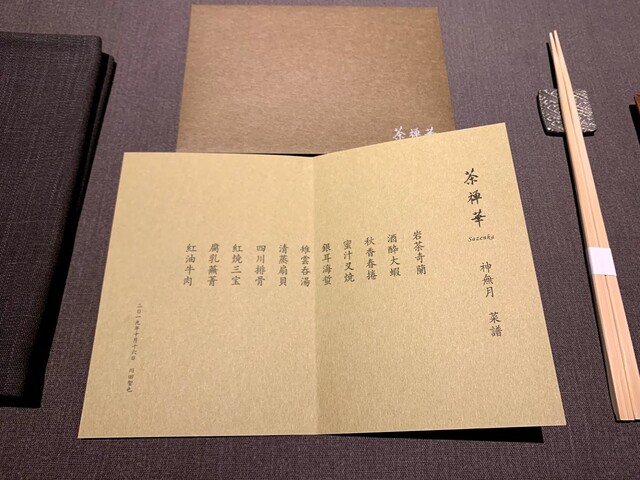 茶禅華
茶禅華
Sazenka
神無月 菜譜
岩茶奇蘭
酒酔大蝦
秋香春捲
蜜汁叉焼
銀耳海蜇
雉雲呑湯
清蒸扇貝
四川排骨
紅焼三宝
腐乳蕪菁
紅油牛肉
二〇一九年十月十六日 川田智也